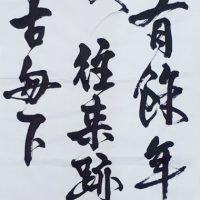 有餘年
往来跡
古每下